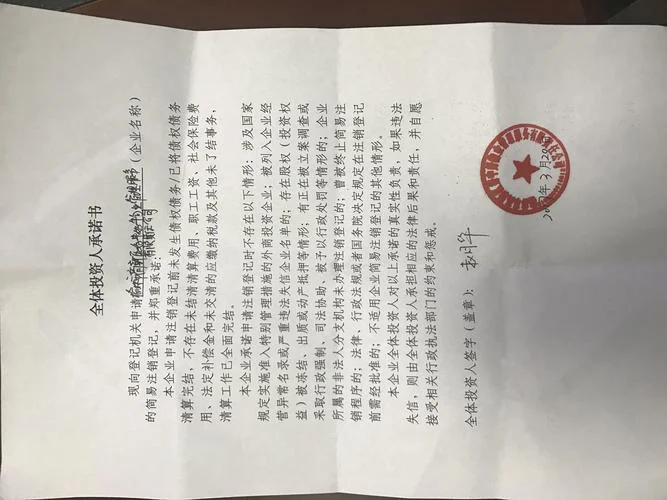 全体投资人承诺书
现向登记机关申请 (企业名称)
的简易注销登记,并郑重承诺:
本企业申请注销登记前未发生债权债务/已将债权债务
清算完结,不存在未结清清算费用、职工工资、社会保险费
用、法定补偿金和未交清的应缴纳税款及其他未了结事务,
清算工作已全面完结。
本企业承诺申请注销登记时不存在以下情形:涉及国家
规定实施准入特别管理措施的外商投资企业;被列入企业经
营异常名录或严重违法失信企业名单的;存在股权(投资权
益)被冻结、出质或动产抵押等情形;有正在被立案调查或
采取行政强制、司法协助、被予以行政处罚等情形的;企业
所属的非法人分支机构未办理注销登记的;曾被终止简易注
销程序的;法律、行政法规或者国务院决定规定在注销登记
前需经批准的;不适用企业简易注销登记的其他情形。
本企业全体投资人对以上承诺的真实性负责,如果违法
失信,则由全体投资人承担相应的法律后果和责任,并自愿
接受相关行政执法部门的约束和惩戒。
全体投资人签字(盖章):
年3月20日